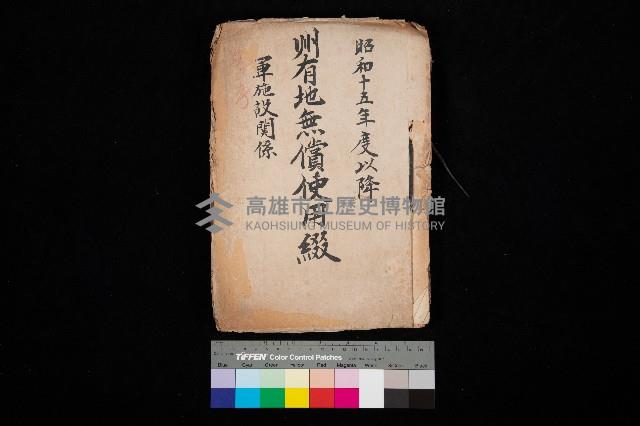 昭和十五年度以降
州有地無償使用綴
軍施設関係
高雄市立歷史博物館
KAOHSIUNG MUSEUM OF HISTORY
TIFFEN Color Control Patches
Blue Cyan Green Yellow Red Magenta White 3/Color Black